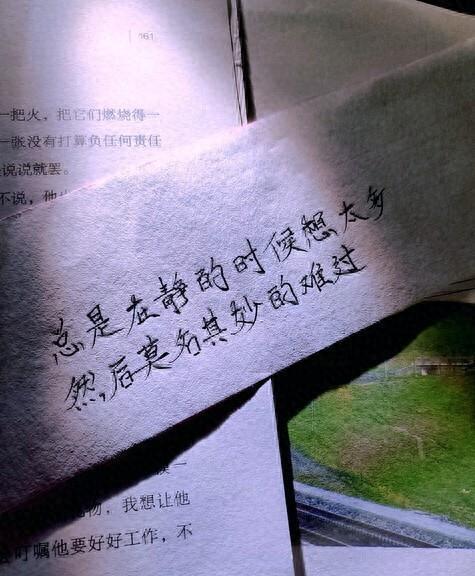 161
一把火，把它们燃烧得一
一张没有打算负任何责任
说说就罢。
不说，他
总是在静的时候想太多
然后莫名其妙的难过
一
物，我想让他
叮嘱他要好好工作，不